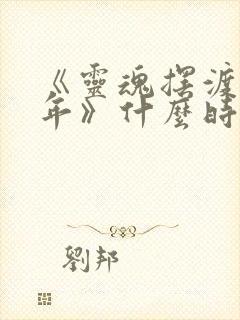 《靈魂摆渡
年》什麼時
劉邦